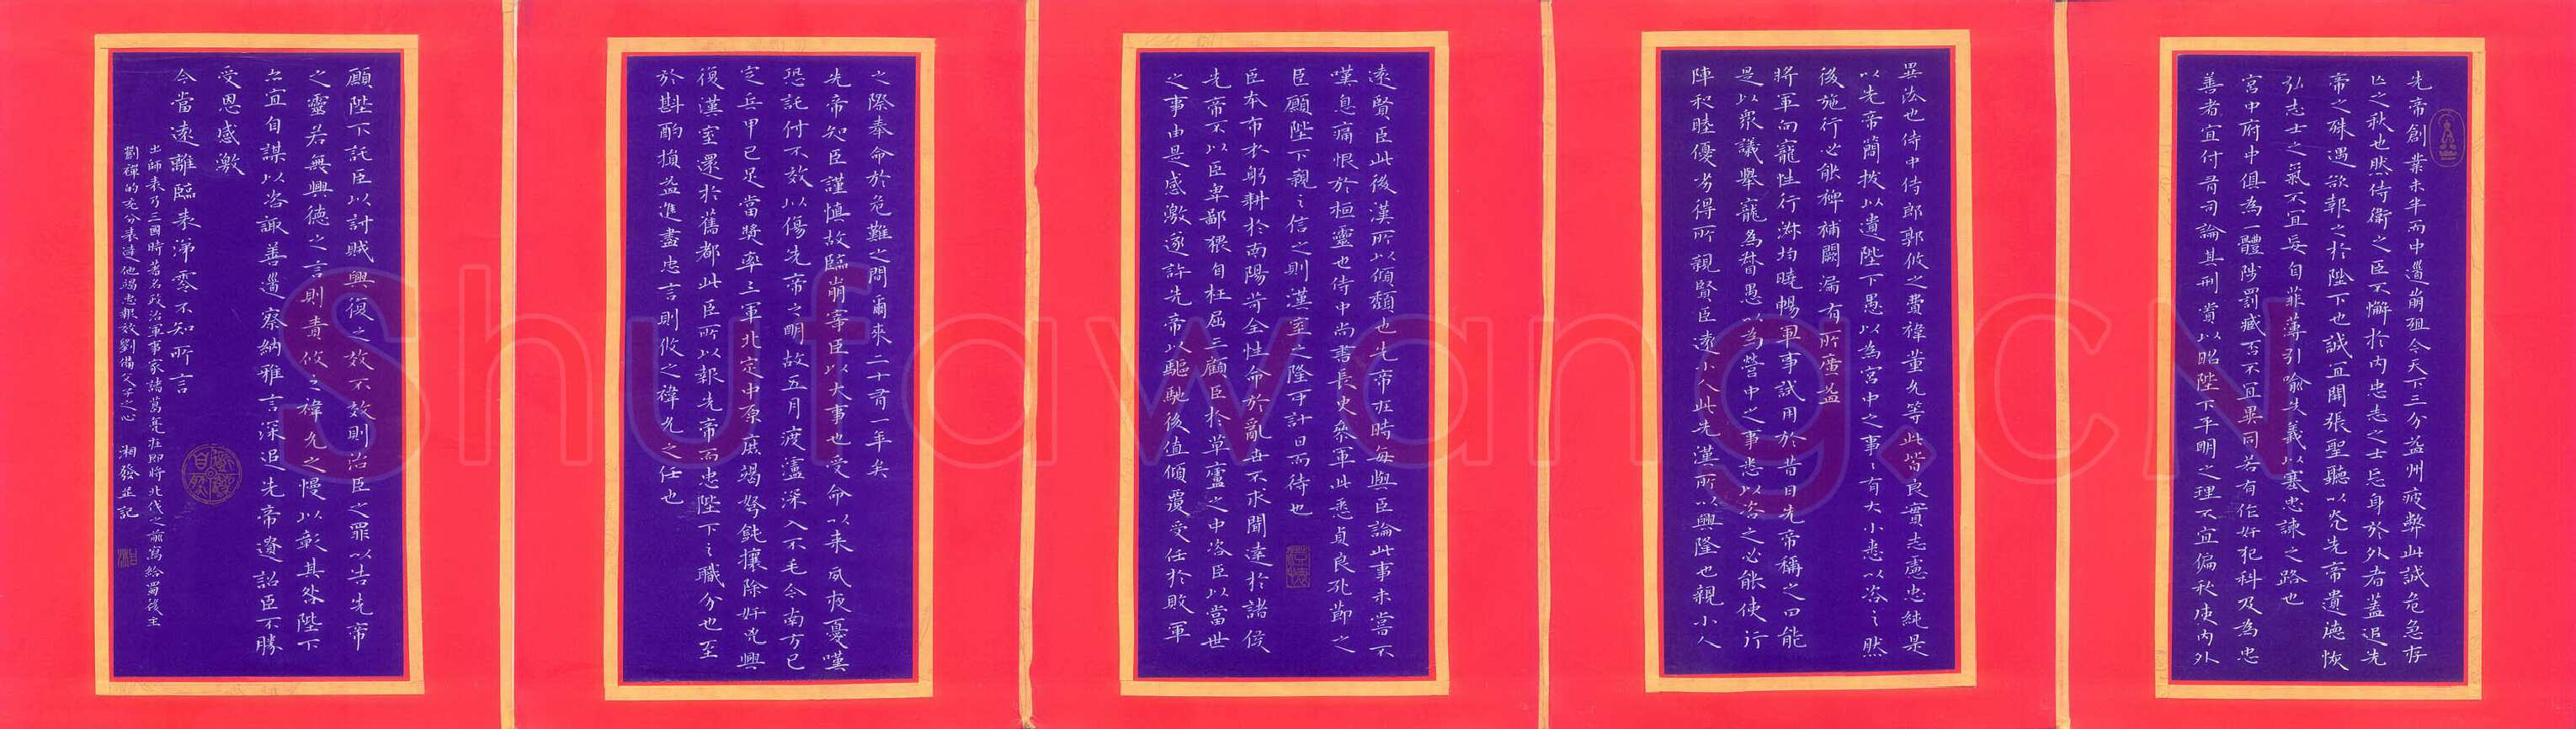 先帝創業未半而中道崩殂今天下三分益州疲弊此誠危急存
亡之秋也然侍衛之臣不懈於内忠志之士忘身於外者蓋追先
帝之殊遇欲報之於陛下也誠宜開張聖聽以光先帝遺德恢
弘志士之氣不宜妄自菲薄引喻失義以塞忠諫之路也
宮中府中俱為一體陟罰臧否不宜異同若有作奸犯科及為忠
善者宜付有司論其刑賞以昭陛下平明之理不宜偏私使内外
異法也侍中侍郎郭攸之費禕董允等此皆良實志慮忠純是
以先帝簡拔以遺陛下愚以為宮中之事〻有大小悉以咨之然
後施行必能裨補闕漏有所廣益
將軍向寵性行淑均曉暢軍事試用於昔日先帝稱之曰能
是以眾議舉寵為督愚以為營中之事悉以咨之必能使行
陣和睦優劣得所親賢臣遠小人此先漢所以興隆也親小人
遠賢臣此後漢所以傾頹也先帝在時每與臣論此事未嘗不
嘆息痛恨於桓靈也侍中尚書長史參軍此悉貞良死節之
臣願陛下親之信之則漢室之隆可計日而待也
臣本布衣躬耕於南陽苟全性命於亂世不求聞達於諸侯
先帝不以臣卑鄙猥自枉屈三顧臣於草廬之中咨臣以當世
之事由是感激遂許先帝以驅馳後值傾覆受任於敗軍
之際奉命於危難之間爾來二十有一年矣
先帝知臣謹慎故臨崩寄臣以大事也受命以來夙夜憂嘆
恐託付不效以傷先帝之明故五月渡瀘深入不毛今南方已
定兵甲已足當獎率三軍北定中原庶竭駑鈍攘除奸兇興
復漢室還於舊都此臣所以報先帝而忠陛下之職分也至
於斟酌損益進盡忠言則攸之禕允之任也
願陛下託臣以討賊興復之效不效則治臣之罪以告先帝
之靈若無興德之言則責攸之禕允之慢以彰其咎陛下
亦宜自謀以咨諏善道察納雅言深追先帝遺詔臣不勝
受恩感激
今當遠離臨表涕零不知所言
出師表乃三國時著名政治軍事家諸葛亮在即將北伐之前寫給蜀後主
劉禪的充分表達他竭忠報效劉備父子之心 湘發並記
Shufawang.CN